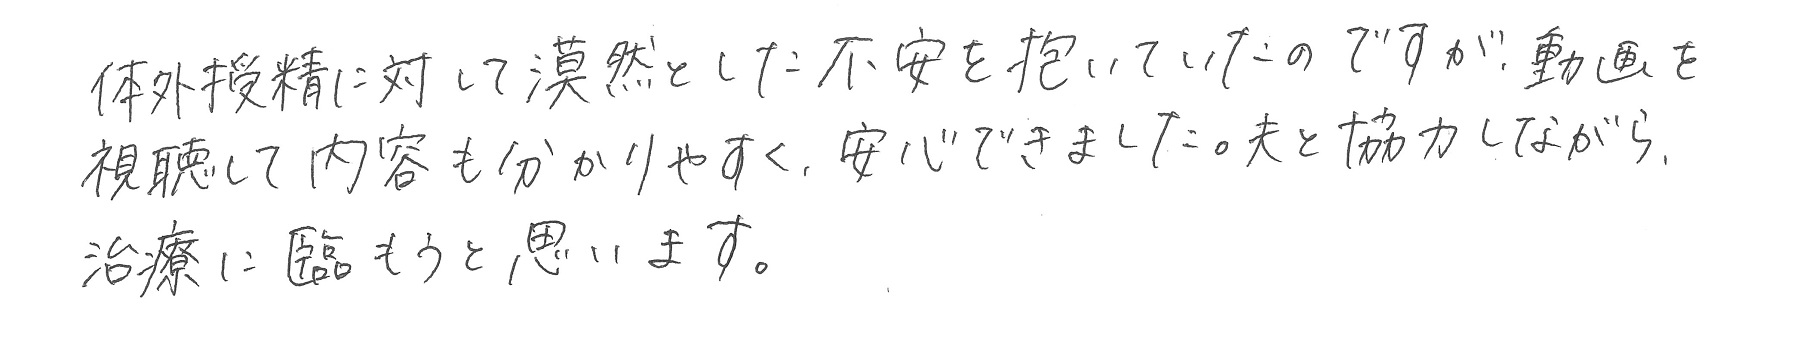 体外授精に対して漠然とした不安を抱いていたのですが、動画を
視聴して内容も分かりやすく、安心できました。夫と協力しながら、
治療に臨もうと思います。